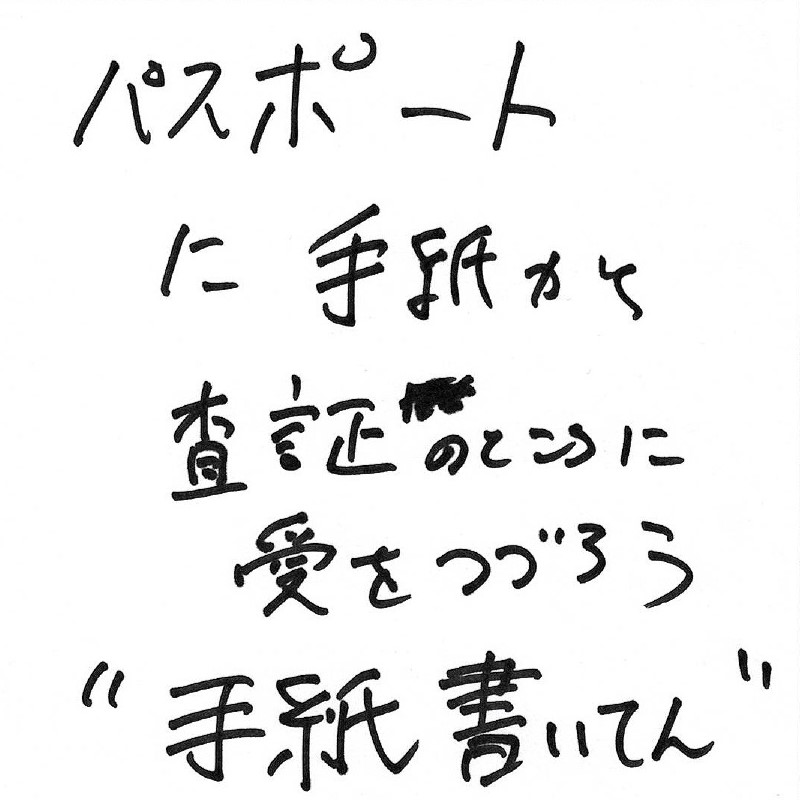 パスポート
に手紙かく
査証のところに
愛をつづろう
“手紙書いてん”